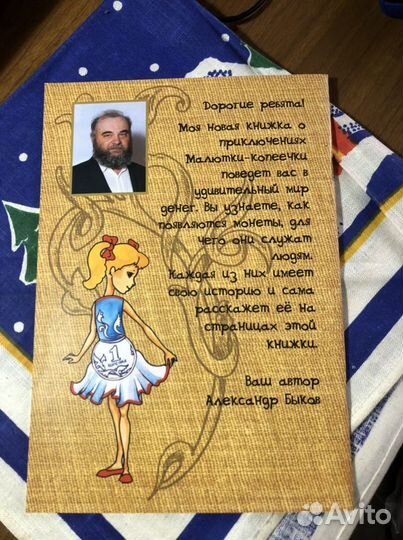 Дорогие ребята!
Моя новая книжка о
приключениях
Малютки-копеечки
поведет вас в
удивительный мир
денег. Вы узнаете, как
появляются монеты, для
чего они служат
людям.
Каждая из них имеет
свою историю и сама
расскажет её на
страницах этой
книжки.
Ваш автор
Александр Быков
1
Avito